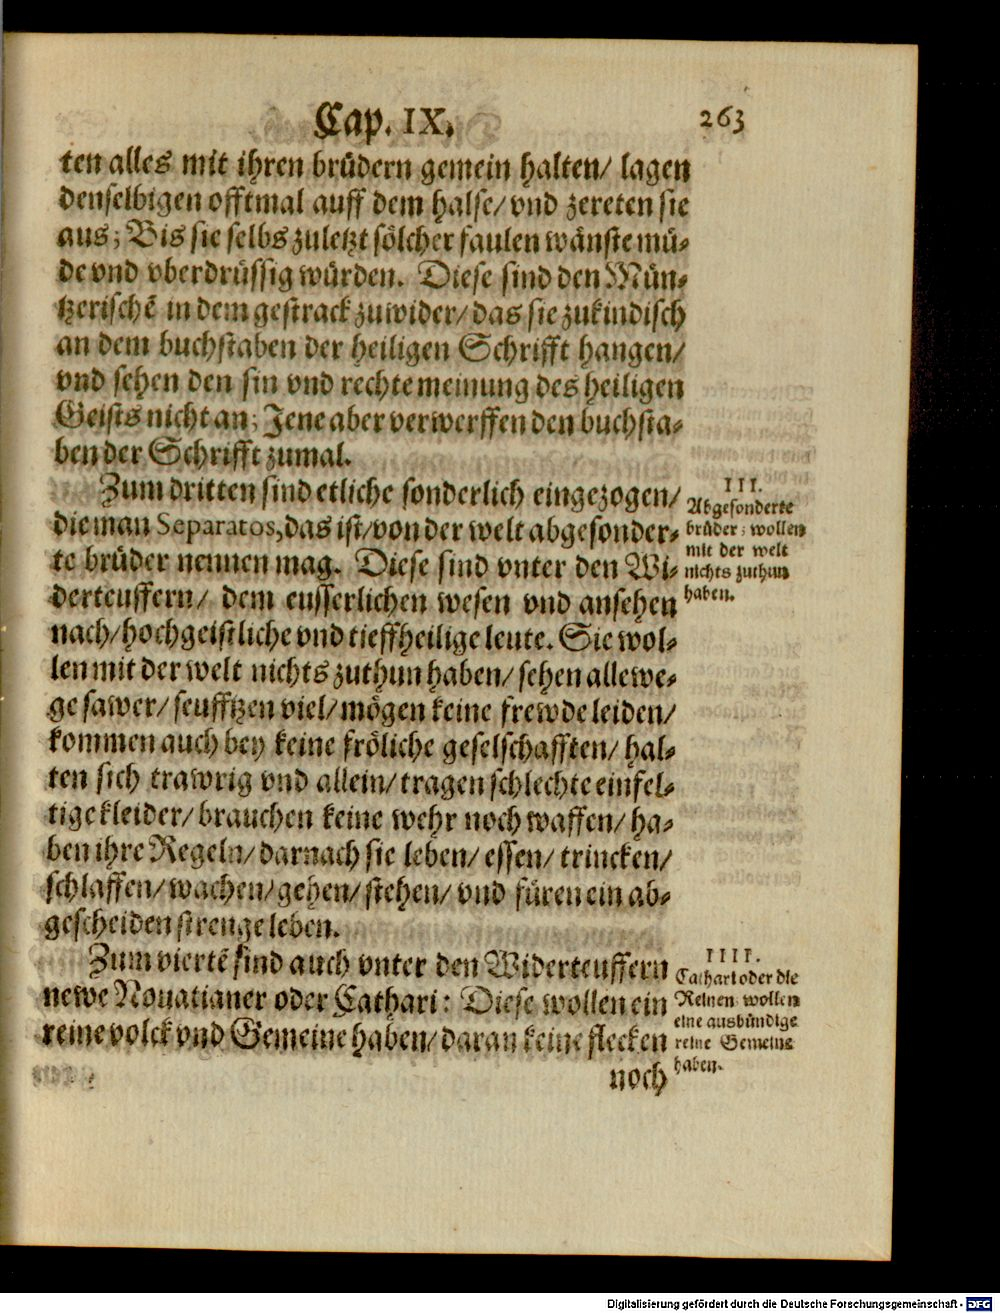 Cap. IX. 263
ten alles mit ihren brüdern gemein halten/ lagen
denselbigen offtmal auff dem halse/ vnd zereten sie
aus; Bis sie selbs zuletzt sölcher faulen wänste mü-
de vnd vberdrüssig würden. Diese sind den Mün-
tzerischē in dem gestrack zuwider/ das sie zukindisch
an dem buchstaben der heiligen Schrifft hangen/
vnd sehen den sin vnd rechte meinung des heiligen
Geists nicht an; Jene aber verwerffen den buchsta-
ben der Schrifft zumal.
Zum dritten sind etliche sonderlich eingezogen/
die man Separatos, das ist/ von der welt abgesonder-
te brüder nennen mag. Diese sind vnter den Wi-
derteuffern/ dem eusserlichen wesen vnd ansehen
nach/ hochgeistliche vnd tieffheilige leute. Sie wol-
len mit der welt nichts zuthun haben/ sehen allewe-
ge sawer/ seufftzen viel/ mögen keine frewde leiden/
kommen auch bey keine fröliche geselschafften/ hal-
ten sich trawrig vnd allein/ tragen schlechte einfel-
tige kleider/ brauchen keine wehr noch waffen/ ha-
ben ihre Regeln/ darnach sie leben/ essen/ trincken/
schlaffen/ wachen/ gehen/ stehen/ vnd füren ein ab-
gescheiden strenge leben.
III.
Abgesonderte
brüder; wollen
mit der welt
nichts zuthun
haben.
Zum viertē sind auch vnter den Widerteuffern
newe Nouatianer oder Cathari: Diese wollen ein
reine volck vnd Gemeine haben/ daran keine flecken
noch
IIII.
Cathari oder die
Reinen wollen
eine ausbündige
reine Gemeine
haben.
Digitalisierung gefördert durch die Deutsche Forschungsgemeinschaft - DFG